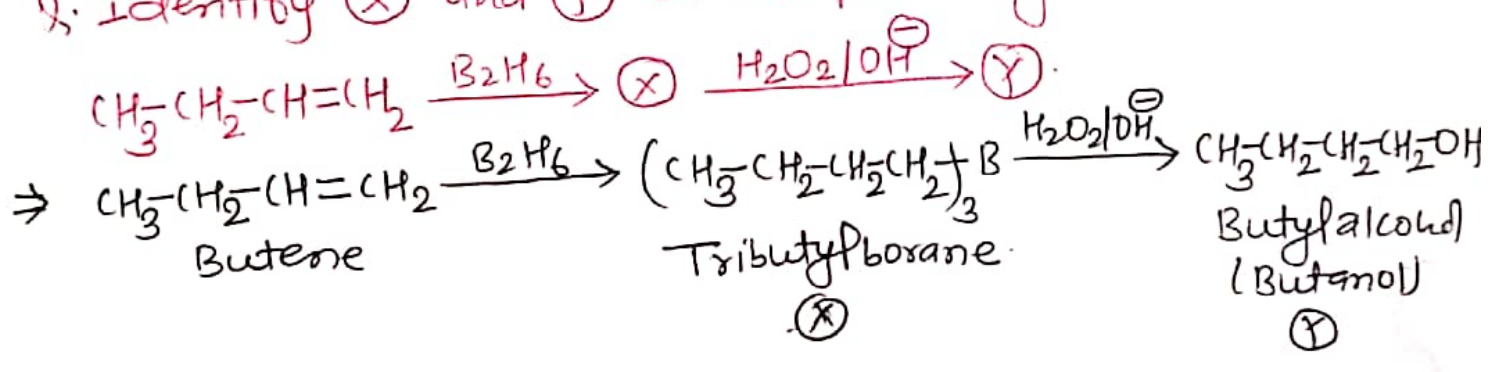 Identify Ⓧ and Ⓨ
CH₃-CH₂-CH=CH₂ —B₂H₆→ Ⓧ —H₂O₂/OH⊖→ Ⓨ.
⇒ CH₃-CH₂-CH=CH₂ —B₂H₆→ (CH₃-CH₂-CH₂-CH₂)₃B —H₂O₂/OH⊖→ CH₃-CH₂-CH₂-CH₂-OH
Butene Tributylborane. Butylalcohol
(Butanol)
Ⓧ Ⓨ